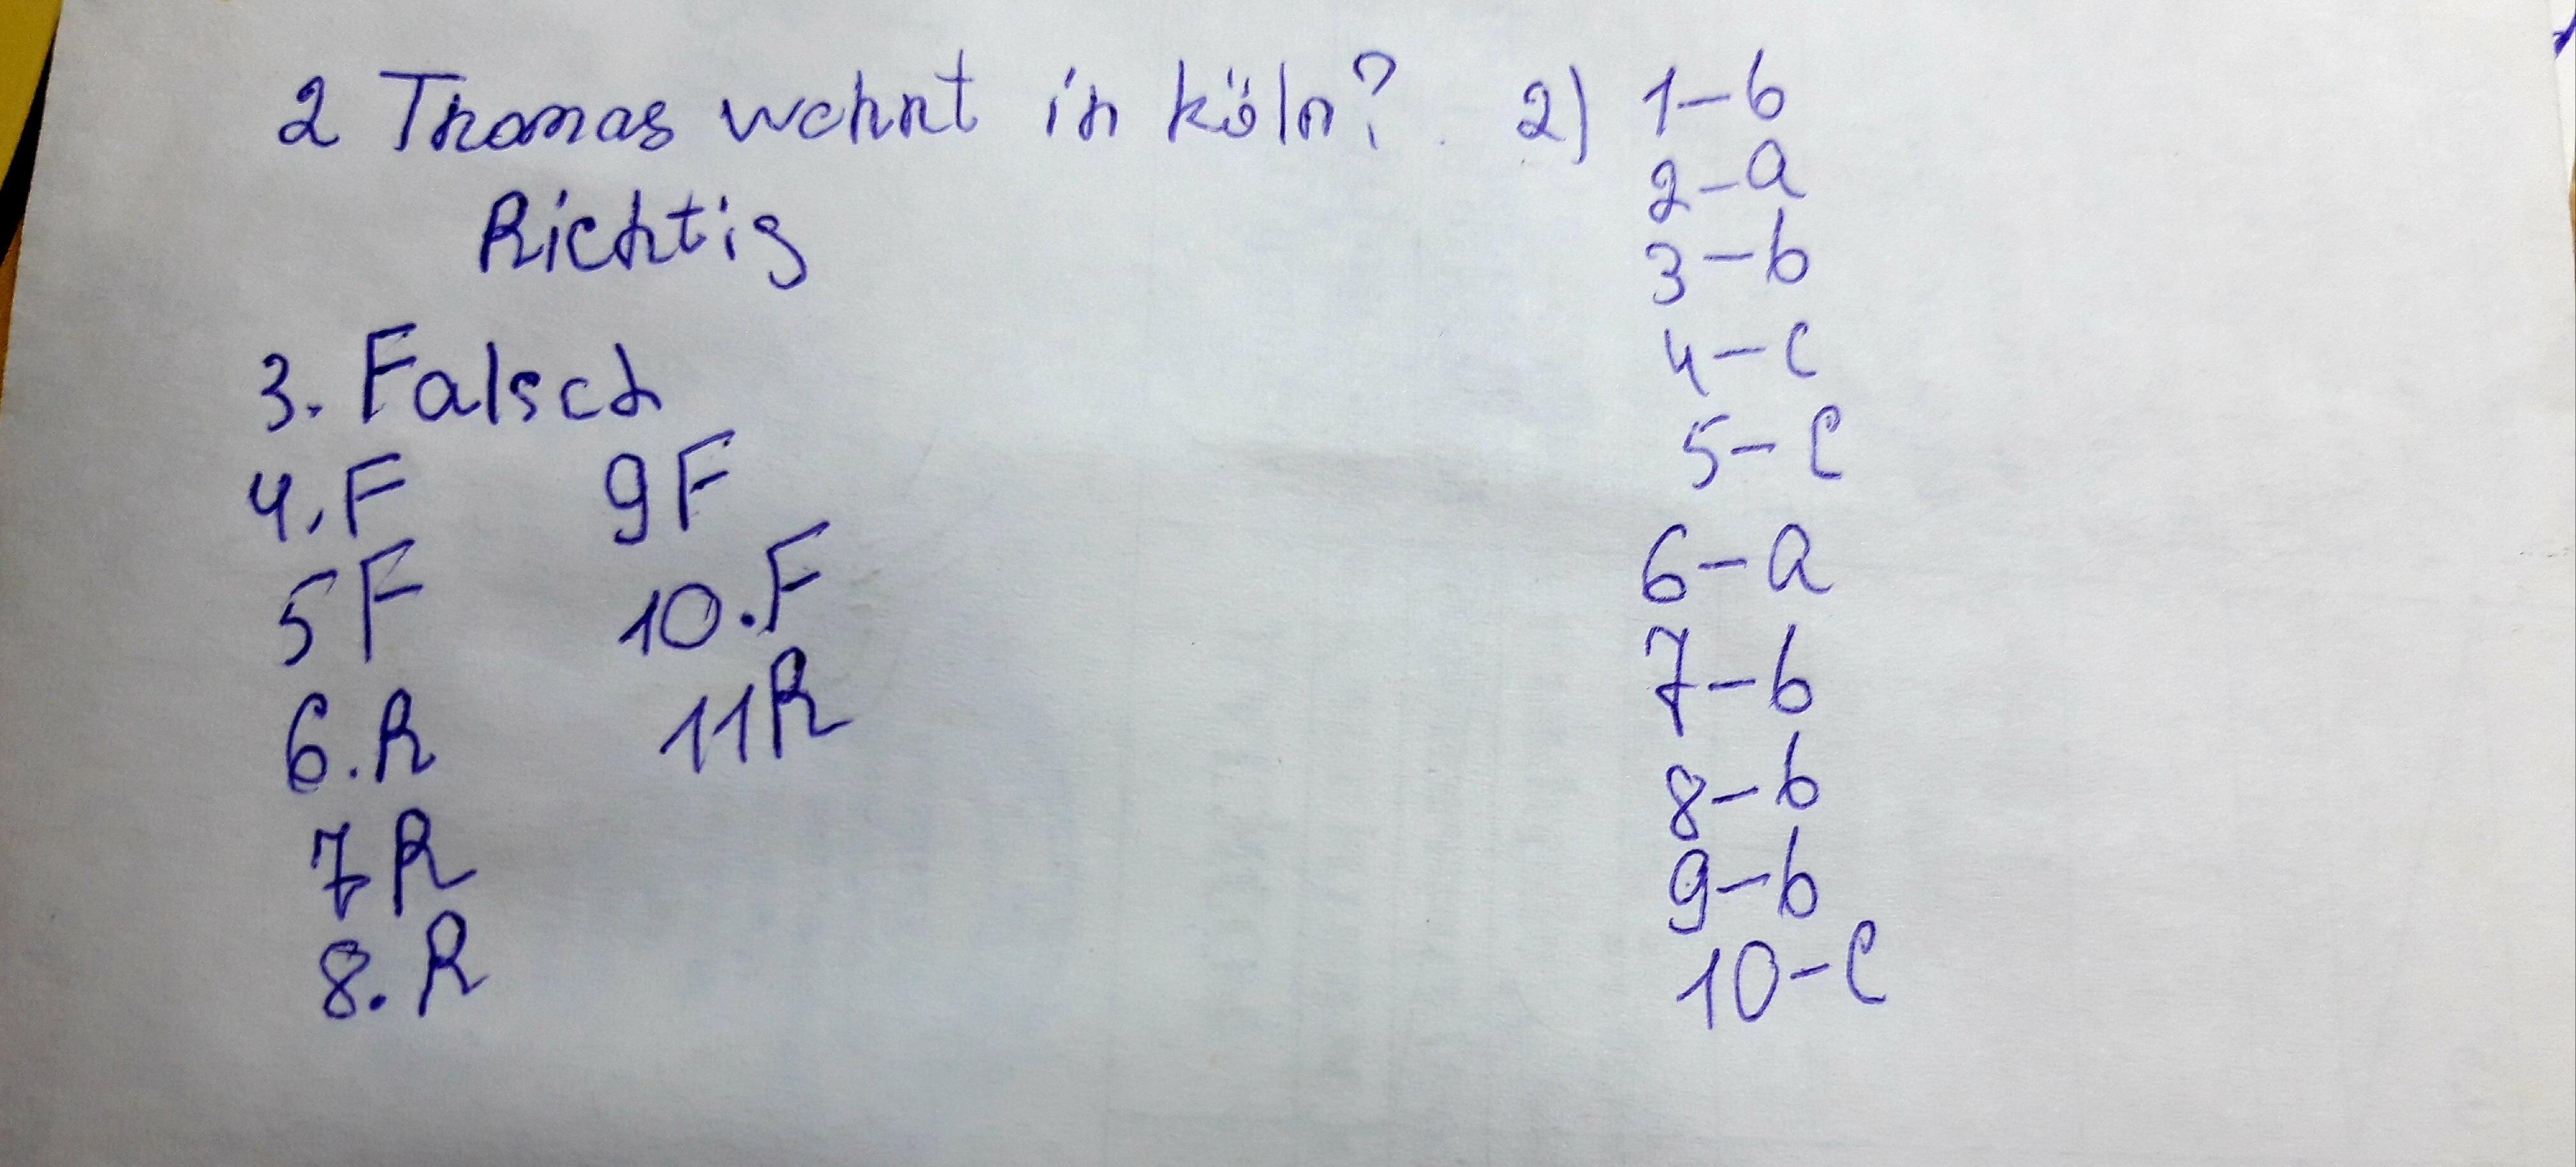 2 Thomas wohnt in Köln?
Richtig
3. Falsch
4. F
5 F
6. R
7 R
8. R
9 F
10. F
11 R
2) 1-b
2-a
3-b
4-c
5-c
6-a
7-b
8-b
9-b
10-c